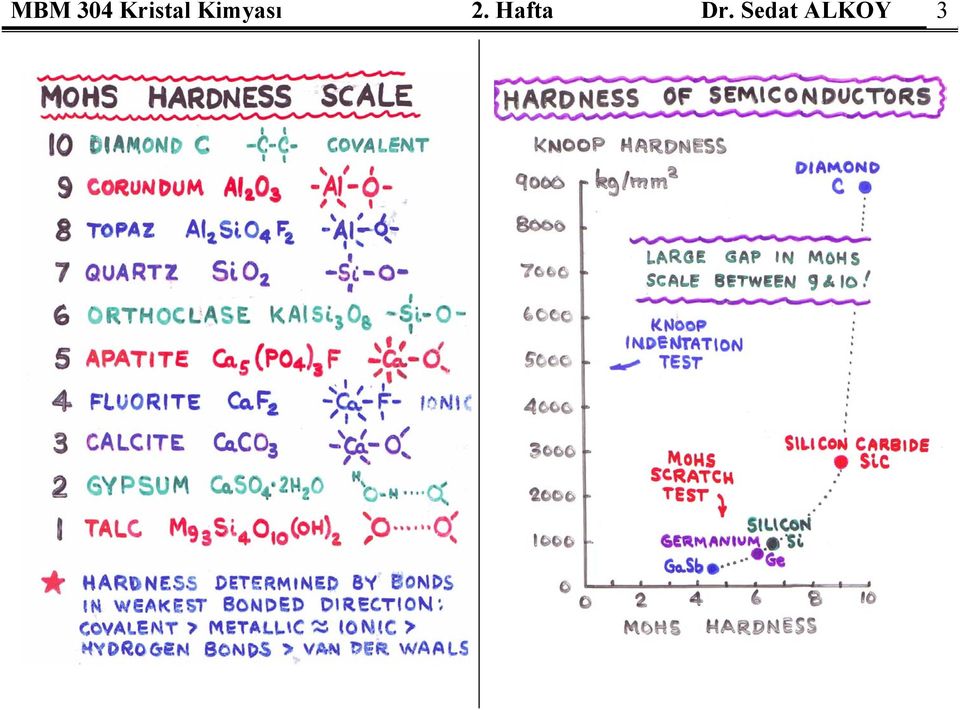 MBM 304 Kristal Kimyası 2. Hafta Dr. Sedat ALKOY 3
MOHS HARDNESS SCALE
10 DIAMOND C -C-C- COVALENT
9 CORUNDUM Al2O3 -Al-O-
8 TOPAZ Al2SiO4F2 -Al-O-
7 QUARTZ SiO2 -Si-O-
6 ORTHOCLASE KAlSi3O8 -Si-O-
5 APATITE Ca5(PO4)3F -Ca-O
4 FLUORITE CaF2 -Ca-F- IONIC
3 CALCITE CaCO3 -Ca-O
2 GYPSUM CaSO4·2H2O H O-H····O
1 TALC Mg3Si4O10(OH)2 O······O
★ HARDNESS DETERMINED BY BONDS
IN WEAKEST BONDED DIRECTION:
COVALENT > METALLIC ≈ IONIC >
HYDROGEN BONDS > VAN DER WAALS
HARDNESS OF SEMICONDUCTORS
KNOOP HARDNESS
kg/mm2
9000
8000
7000
6000
5000
4000
3000
2000
1000
0
DIAMOND
C
LARGE GAP IN MOHS
SCALE BETWEEN 9 & 10!
KNOOP
INDENTATION
TEST
SILICON CARBIDE
SiC
MOHS
SCRATCH
TEST
SILICON
Si
GERMANIUM
Ge
GaSb
0 2 4 6 8 10
MOHS HARDNESS